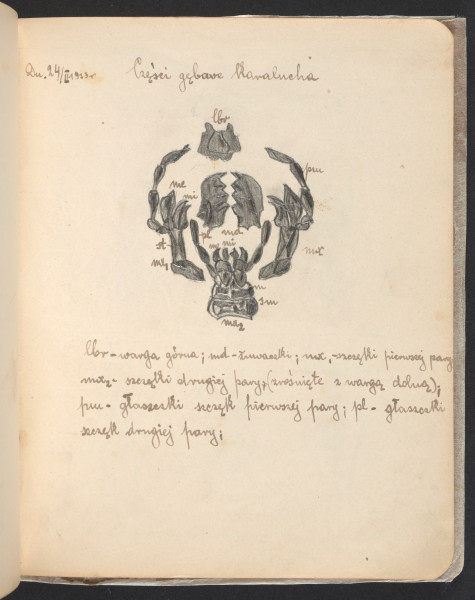 Dn. 24/II 1923 r
Części gębowe Karalucha
lbr
pm
me
mi
pl
md
me mi
st
mx₁
mx₁
m
sm
mx₂
lbr - warga górna; md - żuwaczki; mx₁ - szczęki pierwszej pary
mx₂ - szczęki drugiej pary, (zrośnięte z wargą dolną);
pm - głaszczki szczęk pierwszej pary; pl - głaszczki
szczęk drugiej pary;